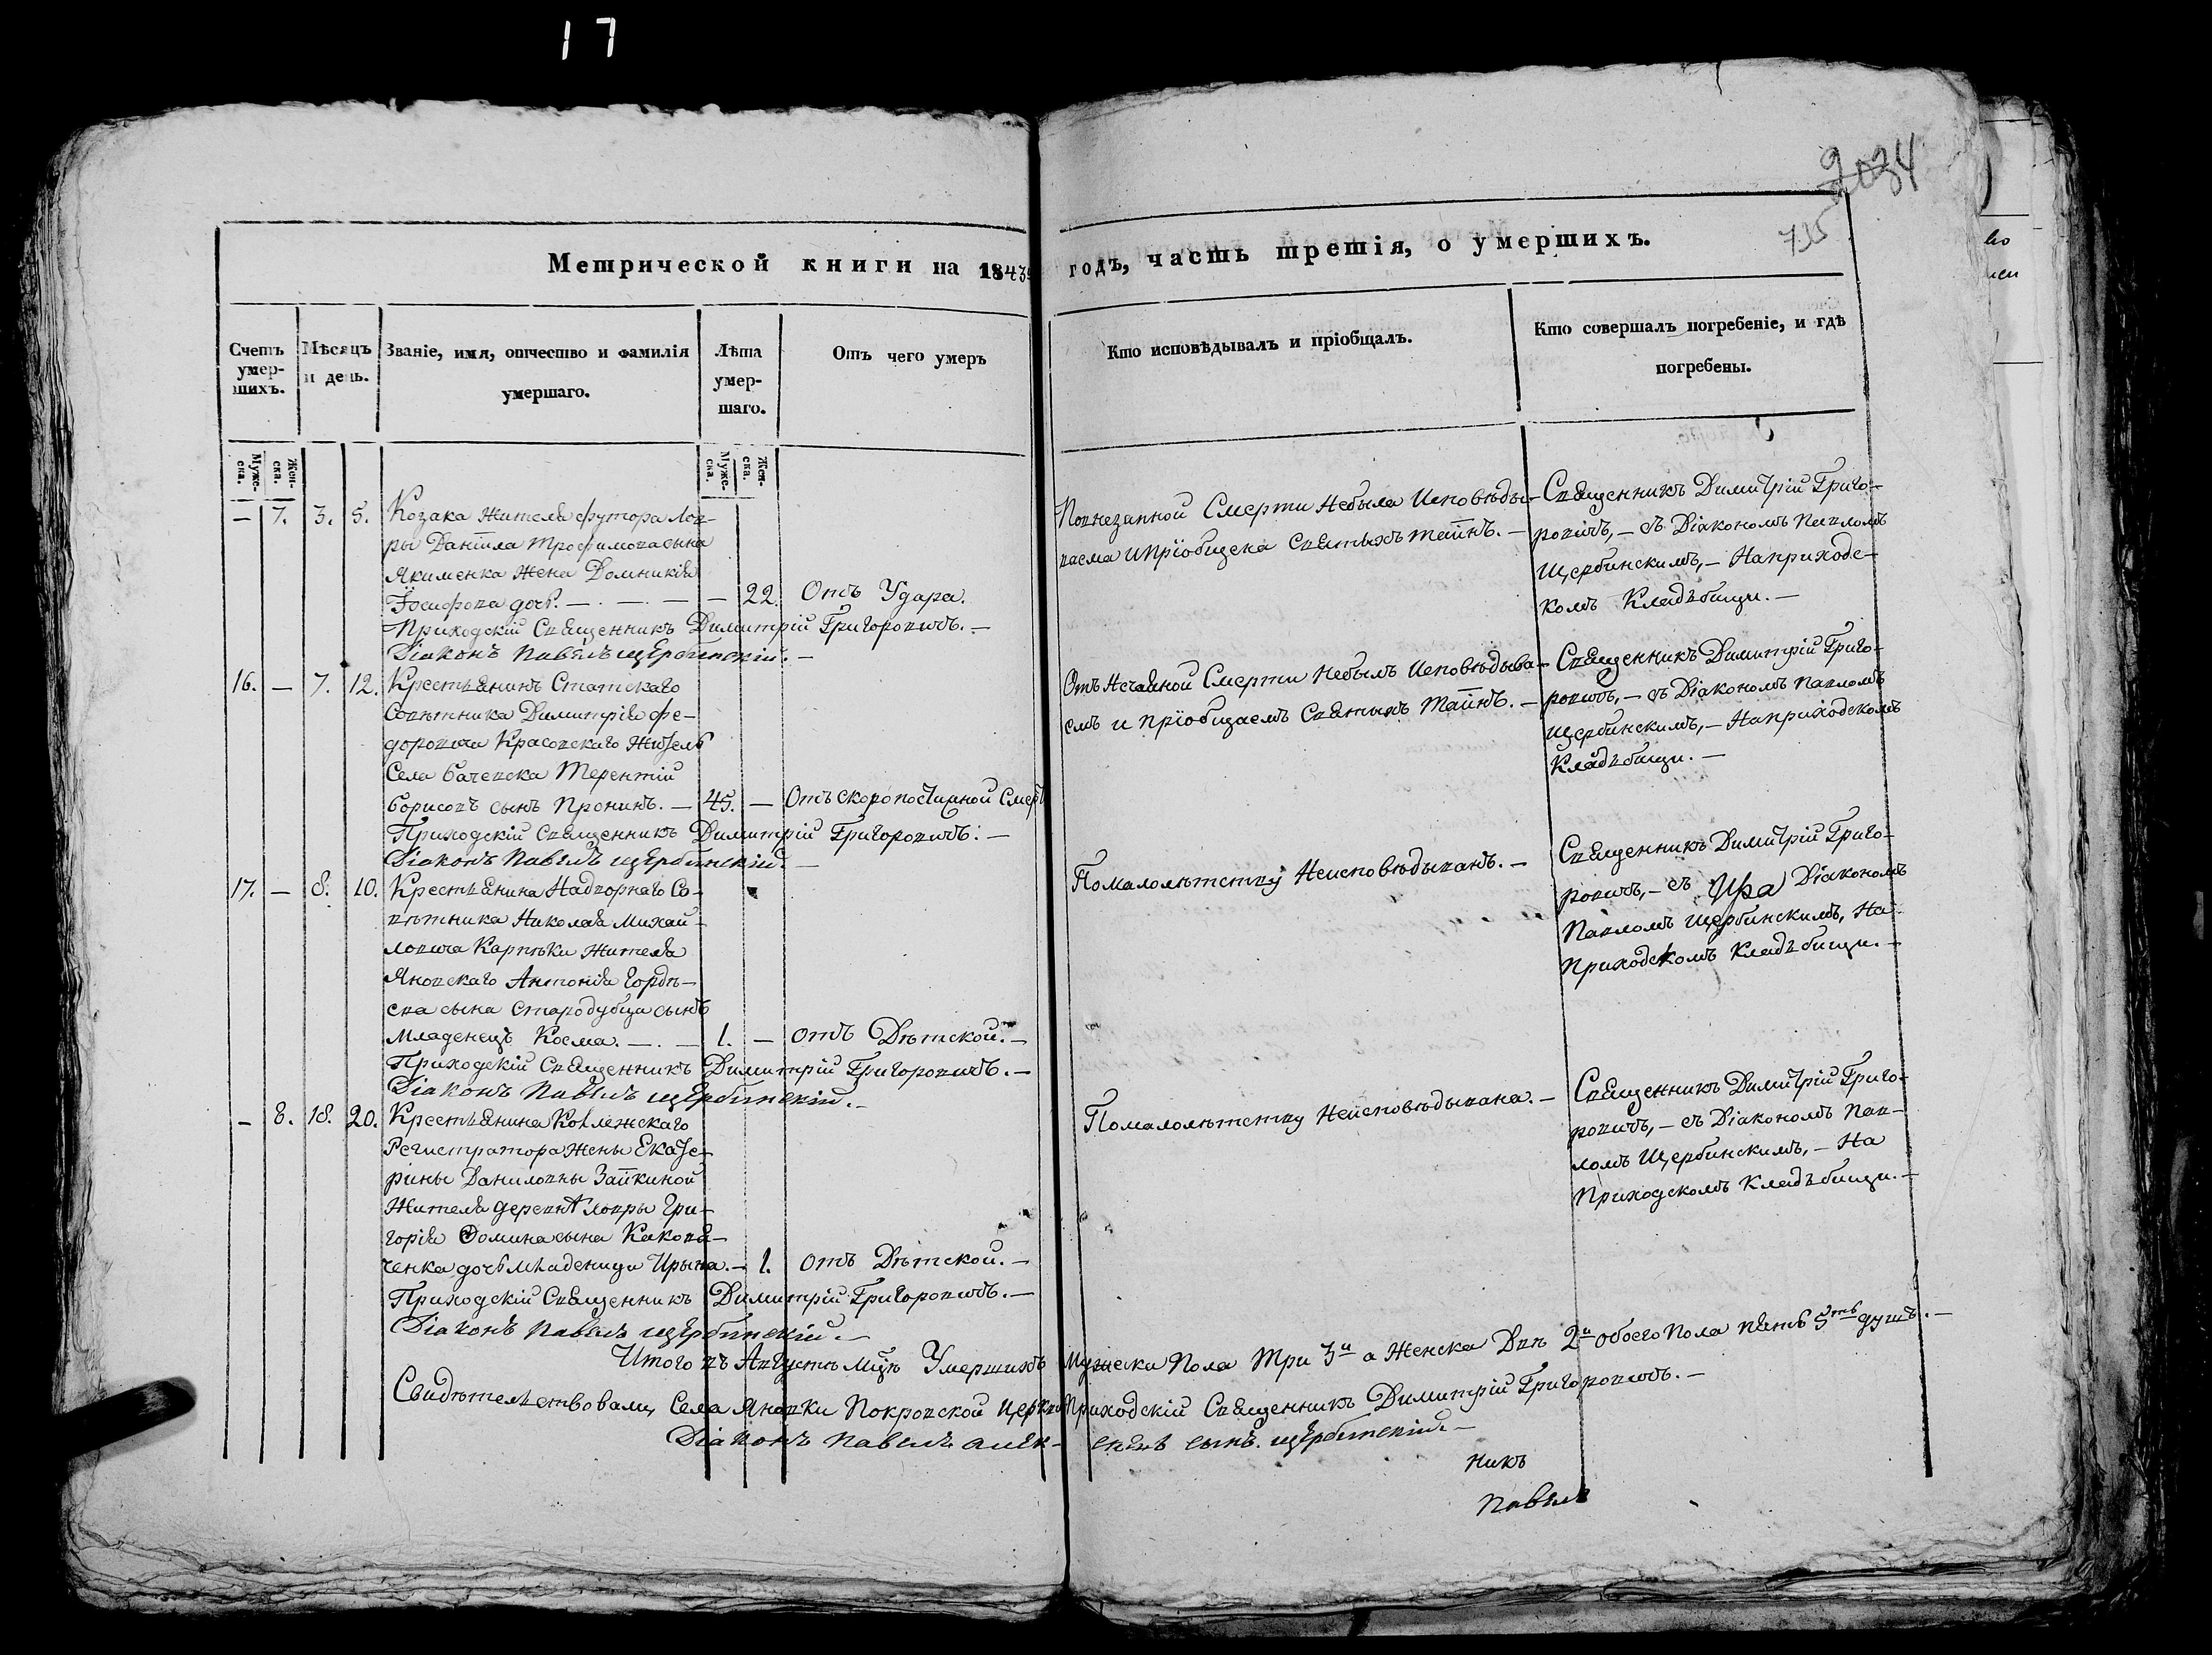 17
9034
715
Метрической книги на 1843й годъ, часть третія, о умершихъ.
Счетъ умер-
шихъ.
Мѣсяцъ
и день.
Званіе, имя, отчество и фамилія
умершаго.
Лѣта
умер-
шаго.
Отъ чего умеръ
Кто исповѣдывалъ и пріобщалъ.
Кто совершалъ погребеніе, и гдѣ
погребены.
Муже-
ска.
Жен-
ска.
Муже-
ска.
Жен-
ска.
— 7. 3. 5. Козака жителя футора Лов-
ры Даніила Трофимова сына
Якименка жена Домникія
Іосифова дочь. — — — 22. Отъ Удара.
Приходскій Священникъ Димитрій Григоровичъ. —
Діаконъ Павелъ Щербинскій. —
Повнезапной Смерти Небыла Исповѣды-
ваема ипріобщена Святыхъ таинъ. —
Священникъ Димитрій Григо-
ровичъ, — съ Діакономъ Павломъ
Щербинскимъ, — Наприходс-
комъ Кладьбищи. —
16. — 7. 12. Крестьянинъ Статскаго
Совѣтника Димитрія Фе-
доровича Красовскаго Житель
Села Бачевска Терентій
Борисовъ сынъ Пронинъ. — 45. — Отъ скоропостижной Смер
Приходскій Священникъ Димитрій Григоровичъ. —
Діаконъ Павелъ Щербинскій. —
Отъ Нечаяной Смерти Небылъ Исповѣдыва-
емъ и пріобщаемъ Святыхъ Таинъ. —
Священникъ Димитрій Григо-
ровичъ, — съ Діакономъ Павломъ
Щербинскимъ, — Наприходскомъ
Кладьбищи. —
17. — 8. 10. Крестьянина Надворнаго Со-
вѣтника Николая Михай-
ловича Карпѣки Жителя
Яновскаго Антонія Гордѣ-
ева сына Стародубца сынъ
Младенецъ Косма. — — 1. — отъ Дѣтской. —
Приходскій Священникъ Димитрій Григоровичъ. —
Діаконъ Павелъ Щербинскій. —
Помалолѣтству Неисповѣдыванъ. —
Священникъ Димитрій Григо-
ровичъ, — съ Діакономъ
Павломъ Щербинскимъ, На
Приходскомъ Кладьбищи. —
— 8. 18. 20. Крестьянина Коллежскаго
Регистратора Жены Екате-
рины Даниловны Заикиной
Жителя деревни Ловры Гри-
горія Фомина сына
дочь младеница Ирына. — 1. отъ Дѣтской. —
Приходскій Священникъ Димитрій Григоровичъ. —
Діаконъ Павелъ Щербинскій. —
Помалолѣтству Неисповѣдывана. —
Священникъ Димитрій Григо-
ровичъ, — съ Діакономъ Пав-
ломъ Щербинскимъ, — На
Приходскомъ Кладьбищи. —
Итого въ Августѣ мцѣ Умершихъ Мужески Пола Три 3и а Женска Двѣ 2и обоего Пола пять 5ть душъ. —
Свидѣтельствовали, Села Яновки Покровской Церкви Приходскій Священникъ Димитрій Григоровичъ. —
Діаконъ Павелъ Алек- сѣевъ сынъ Щербинскій —
никъ
Павелъ